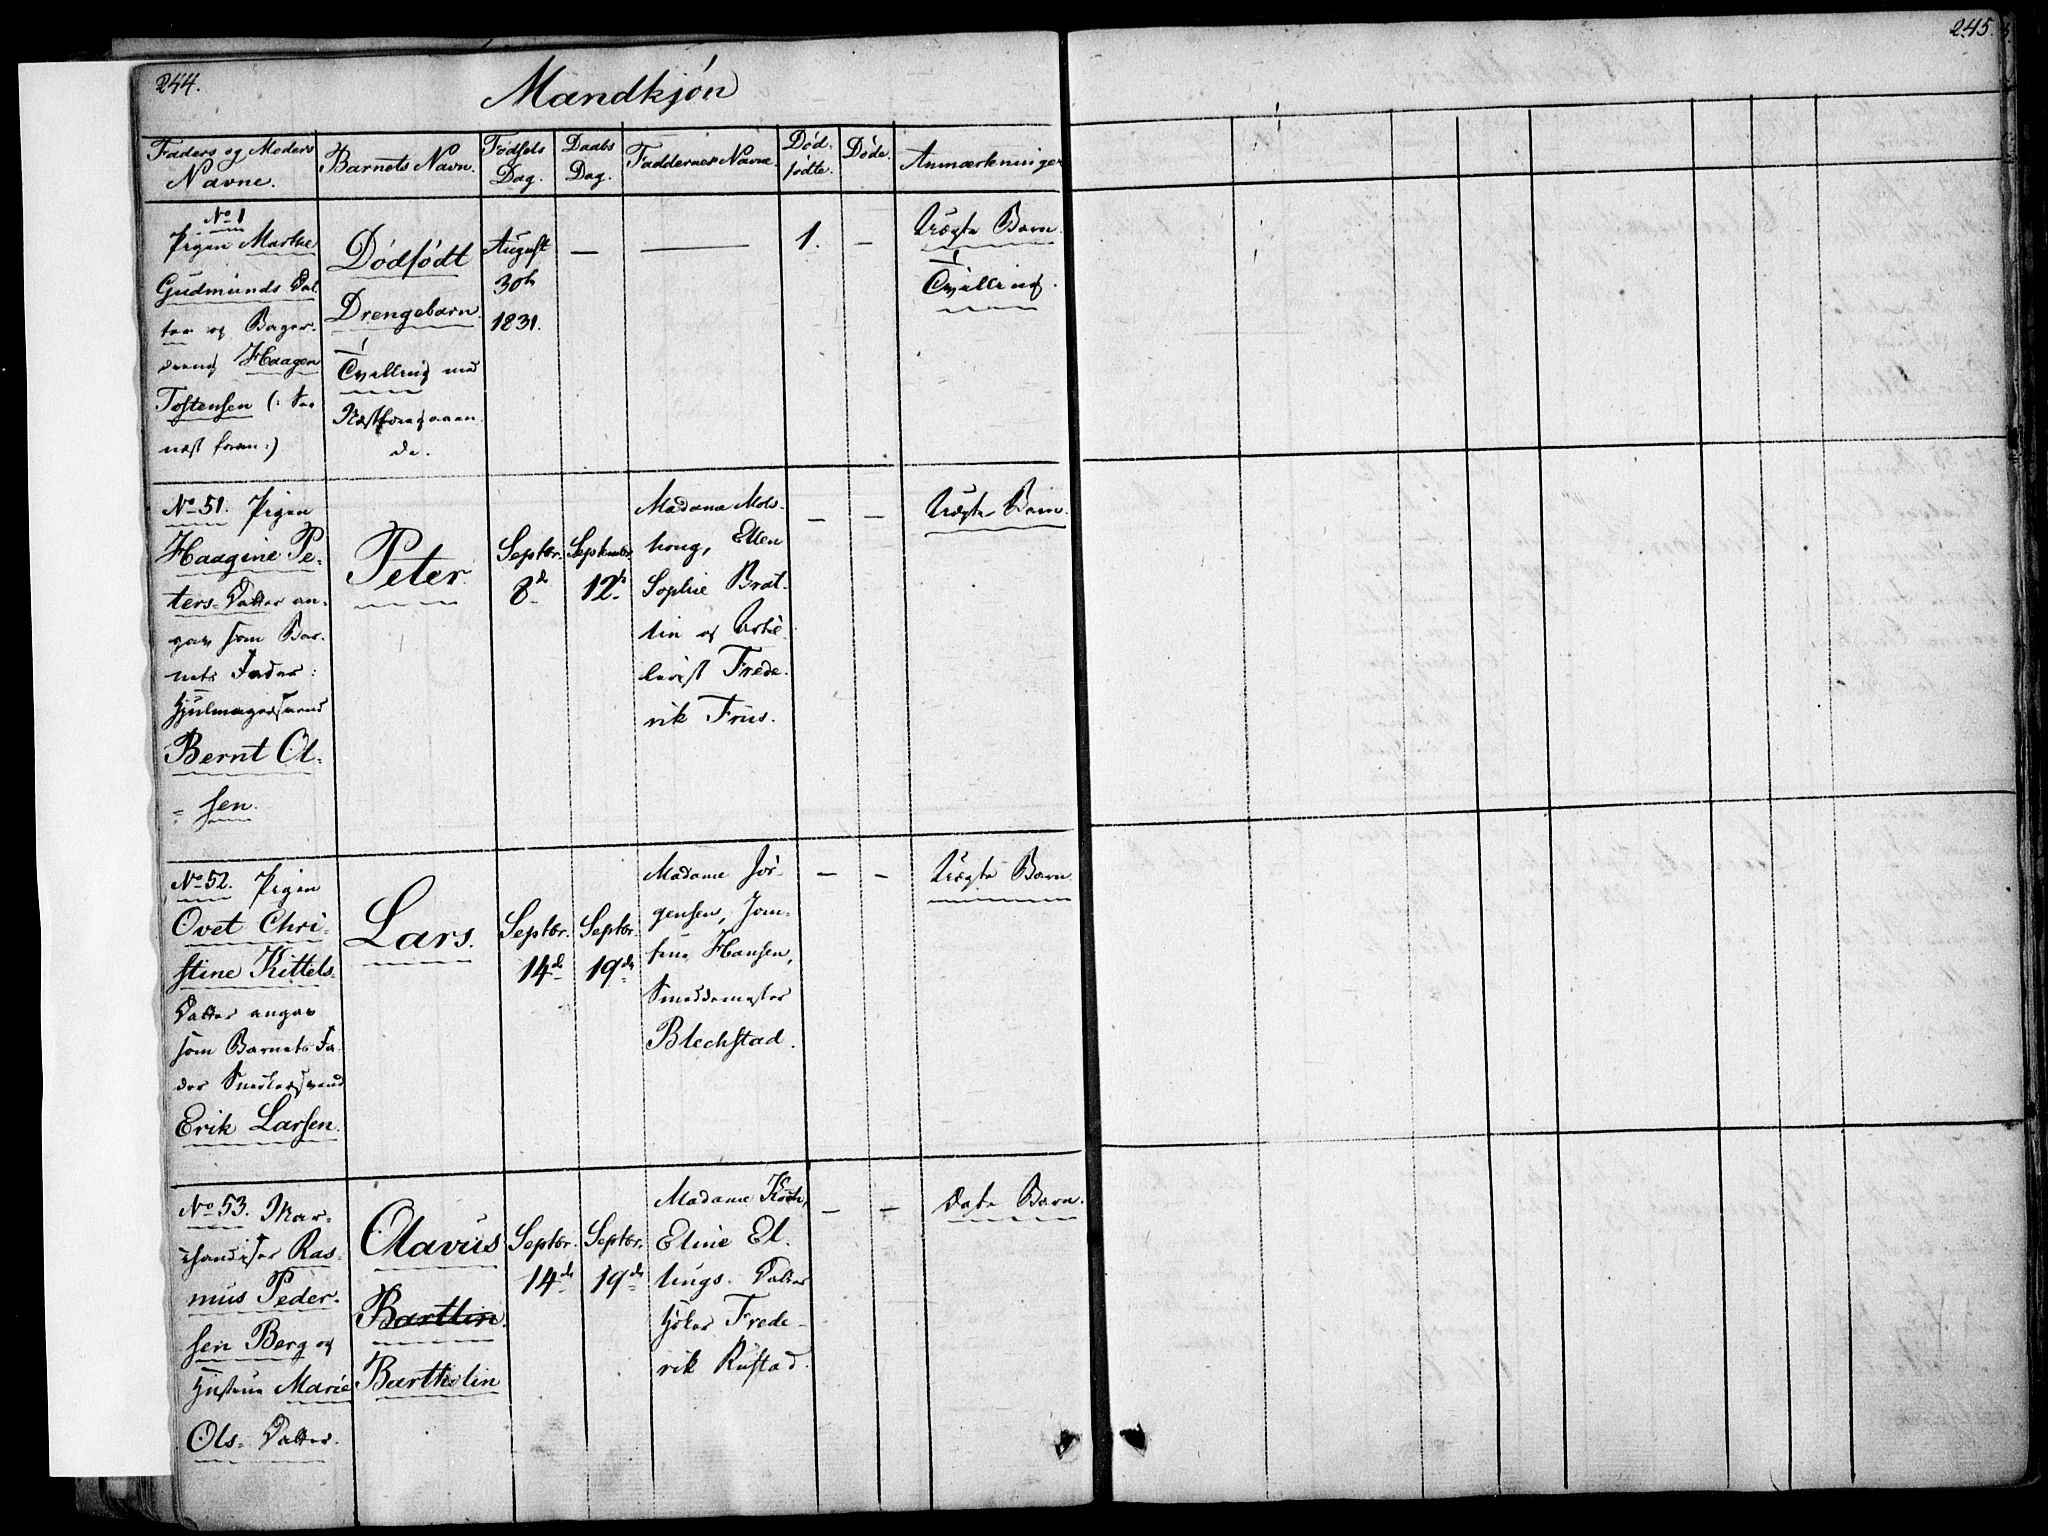 244.
Mandkjøn
245.
Faders og Moders
Navne.
Barnets Navn.
Fødsels
Dag.
Daabs
Dag.
Faddernes Navne.
Død-
födte.
Døde.
Anmærkninger
No 1
Pigen Marthe
Gudmunds Dat
ter og Bager-
dreng Haagen
Tostensen (: See
næst foran :)
Dödfödt
Drengebarn.
1
Tvilling med
Næstforegaaen
de.
August
30te
1831.
—
—
1.
—
Uægte Barn.
1
Tvilling.
No 51. Pigen
Haagine Pe-
ters-Datter an-
gav som Bar-
nets Fader:
Hjulmagersvend
Bernt Ol-
= sen.
Peter.
Septbr.
8de
September
12te
Madame Mols-
houg, Ellen
Sophie Brat-
lin og
Frede-
rik Friis.
—
—
Uægte Barn.
No 52. Pigen
Ovet Chri-
stine Kittels-
Datter angav
som Barnets Fa-
der Snedkersvend
Erik Larsen.
Lars.
Septbr.
14de
Septbr.
19de
Madame Jör-
gensen, Jom-
frue Hansen,
Smeddemester
Blechstad.
—
—
Uægte Barn
No 53. Mar-
chandiser Ras-
mus Peder-
sen Berg og
Hustrue Marie
Ols-Datter.
Olavus
Bartlin.
Bartholin
Septbr.
14de
Septbr.
19de
Madame Koch,
Eline El-
lings-Datter
Höker Frede-
rik Rustad.
—
—
Ægte Barn.